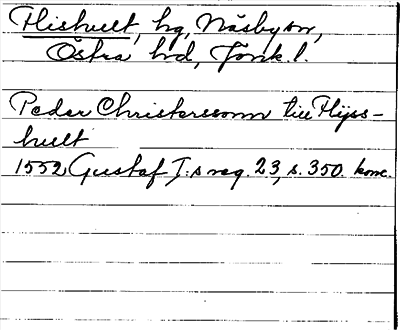 Flishult, hg, Näsby sn,
Östra hd, Jönk. l.
Peder Christerssonn till Flijss-
hullt
1552 Gustaf I:s reg. 23, s. 350. konc.